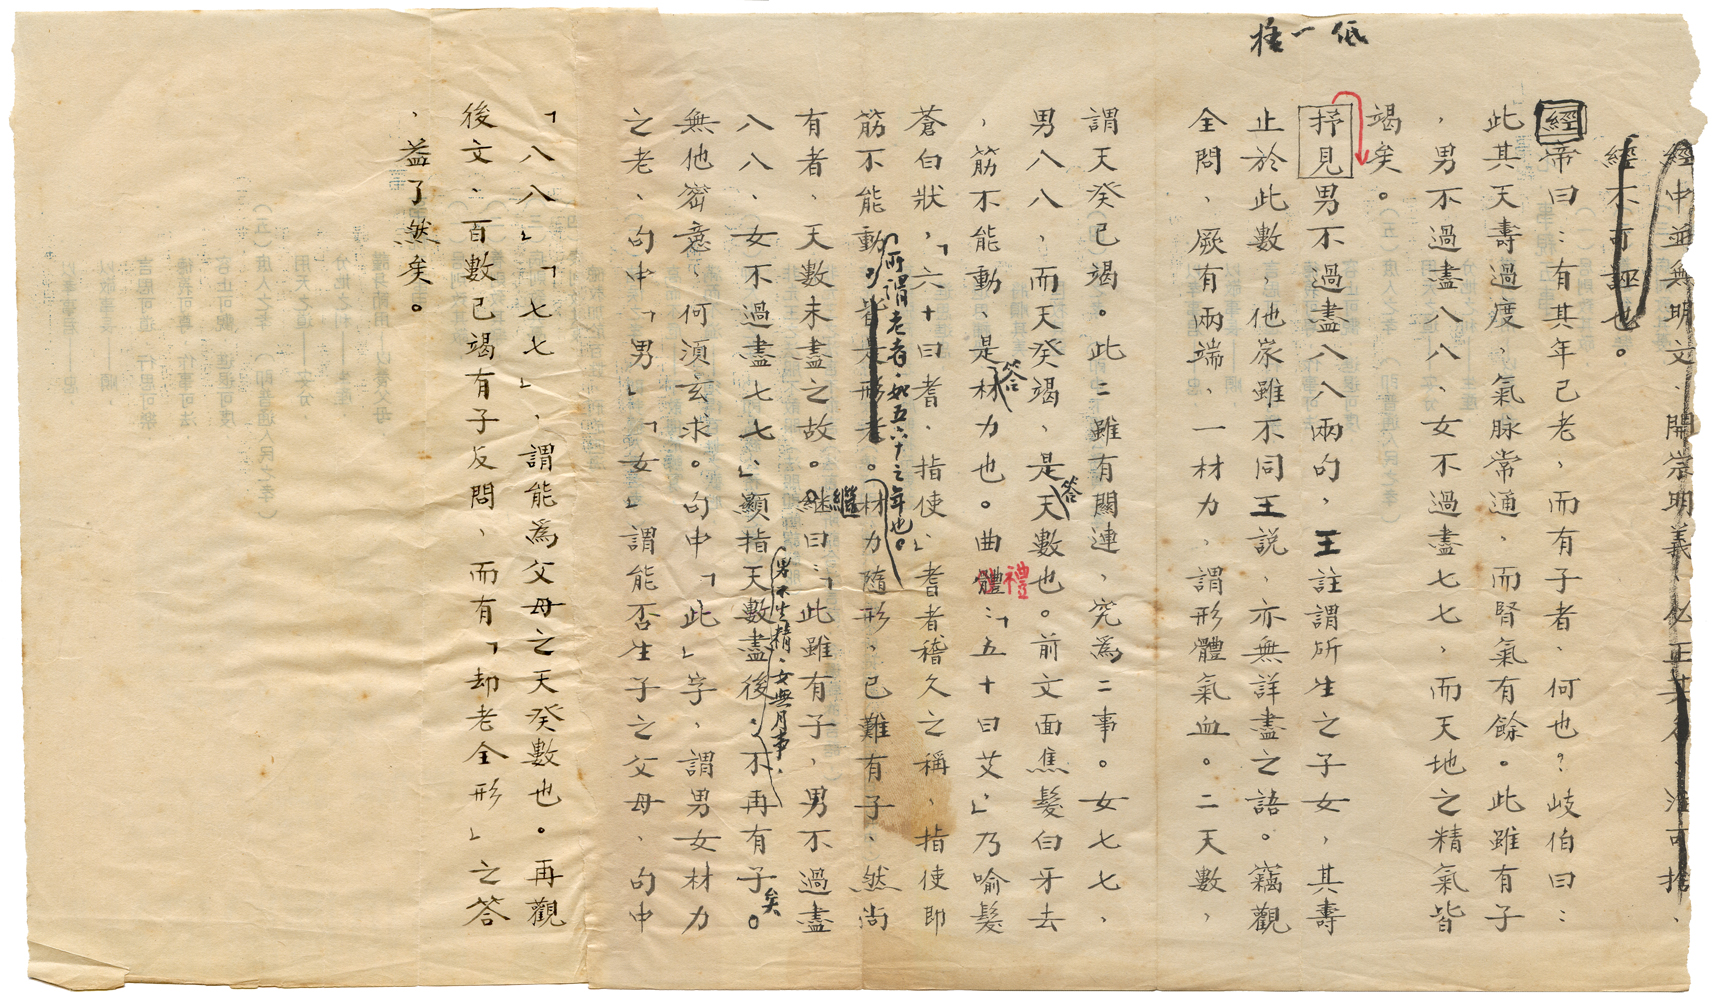 低一格
經中並無明文、開崇明義、必正其名、注可捨、
經不可誣也。
經帝曰：有其年已老，而有子者、何也？岐伯曰：
此其天壽過度、氣脉常通、而腎氣有餘。此雖有子
，男不過盡八八、女不過盡七七、而天地之精氣皆
竭矣。
抒見男不過盡八八兩句，王註謂所生之子女，其壽
止於此數、他家雖不同王説、亦無詳盡之語。竊觀
全問、厥有兩端、一材力、謂形體氣血。二天數，
謂天癸已竭。此二雖有關連、究為二事。女七七、
男八八、而天癸竭、是答天數也。前文面焦髮白牙去
，筋不能動、是答材力也。曲禮：「五十曰艾」乃喻髮
蒼白狀，「六十曰耆、指使」耆者稽久之稱、指使即
筋不能動、所謂老者、如五六十之年也。材力隨形、已難有子、然尚
有者、天數未盡之故。繼曰：「此雖有子，男不過盡
八八、女不過盡七七」顯指天數盡後、男不生精、女無月事、不再有子矣。
無他密意、何須玄求。句中「此」字、謂男女材力
之老、句中「男」「女」謂能否生子之父母、句中
「八八」「七七」、謂能為父母之天癸數也。再觀
後文、百數已竭有子反問、而有「却老全形」之答
、益了然矣。